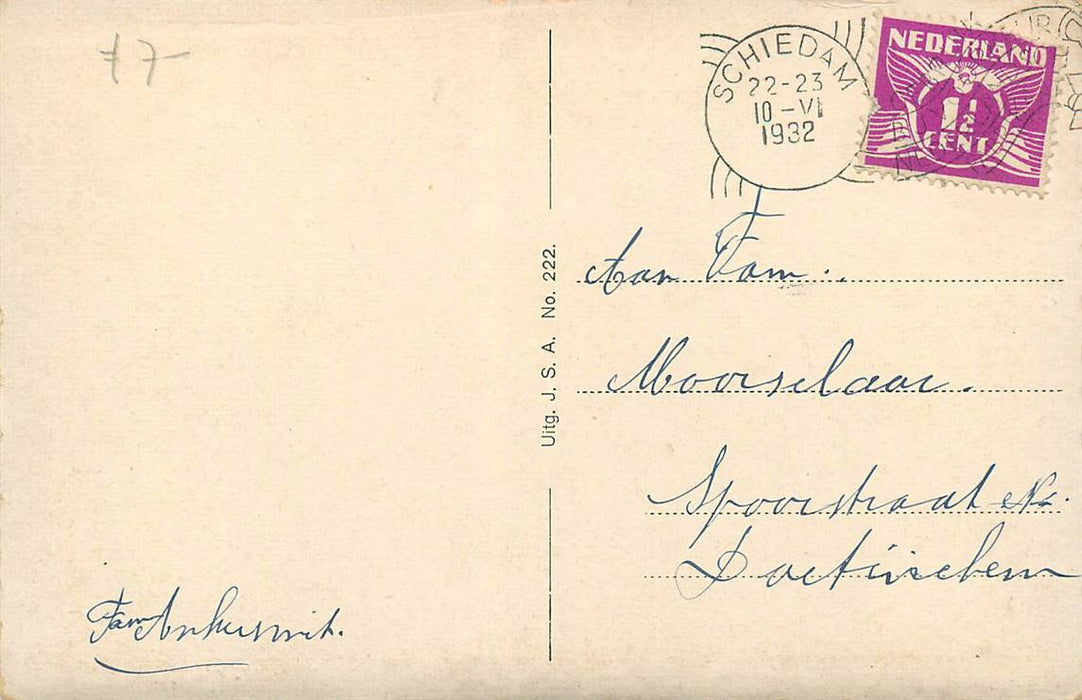 17-
SCHIEDAM
22-23
10-VI
1932
NEDERLAND
1½
CENT
Uitg. J. S. A. No. 222.
Aan Fam.
Moorselaar.
Spoorstraat No.
Doetinchem
Fam Ankersmit.